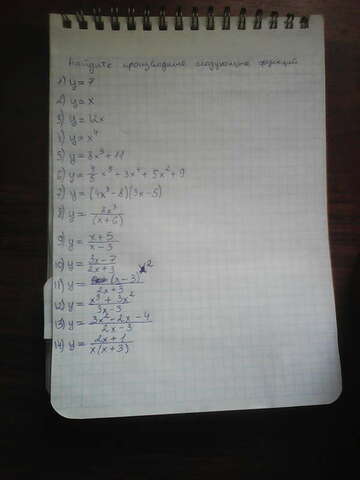 Найдите производные следующих функций
1) y = 7
2) y = x
3) y = 12x
4) y = x⁴
5) y = 8x³ + 11
6) y = 4/5 x⁵ - 3x⁴ + 5x² + 9
7) y = (4x³ - 8)(3x - 5)
8) y = 2x³/(x + 6)
9) y = x + 5/x - 3
10) y = 3x - 7/2x + 3
11) y = (x - 3)²/2x + 5
12) y = x³ + 3x²/3x - 3
13) y = 3x² - 2x - 4/2x - 3
14) y = 2x + 1/x(x + 3)